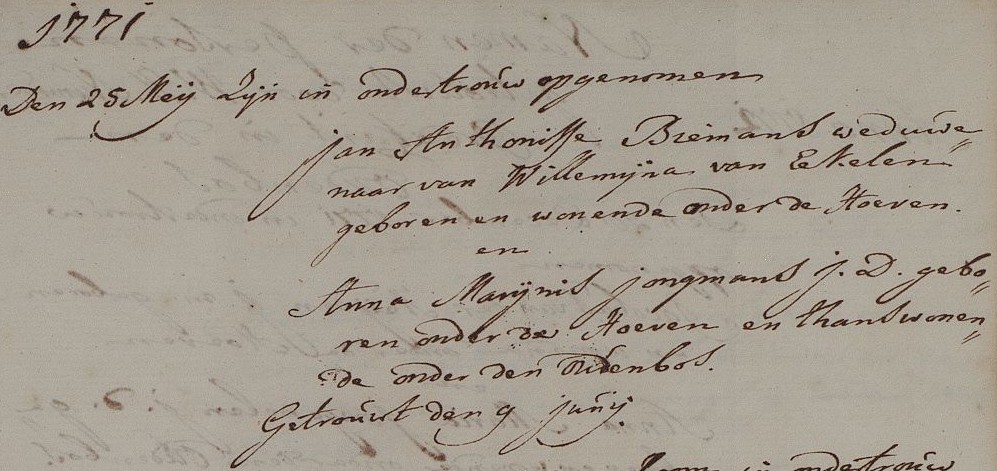 1771
Den 25 Meij Zijn in ondertrouw opgenomen
Jan Anthonisse Biemans weduwe=
naar van Willemijna van Ekelen
geboren en wonende onder de Hoeven.
en
Anna Marijnis jongmans j. D. gebo=
ren onder de Hoeven en thans wonen=
de onder den Oudenbos.
Getrouwt den 9 junij
in ondertrouw